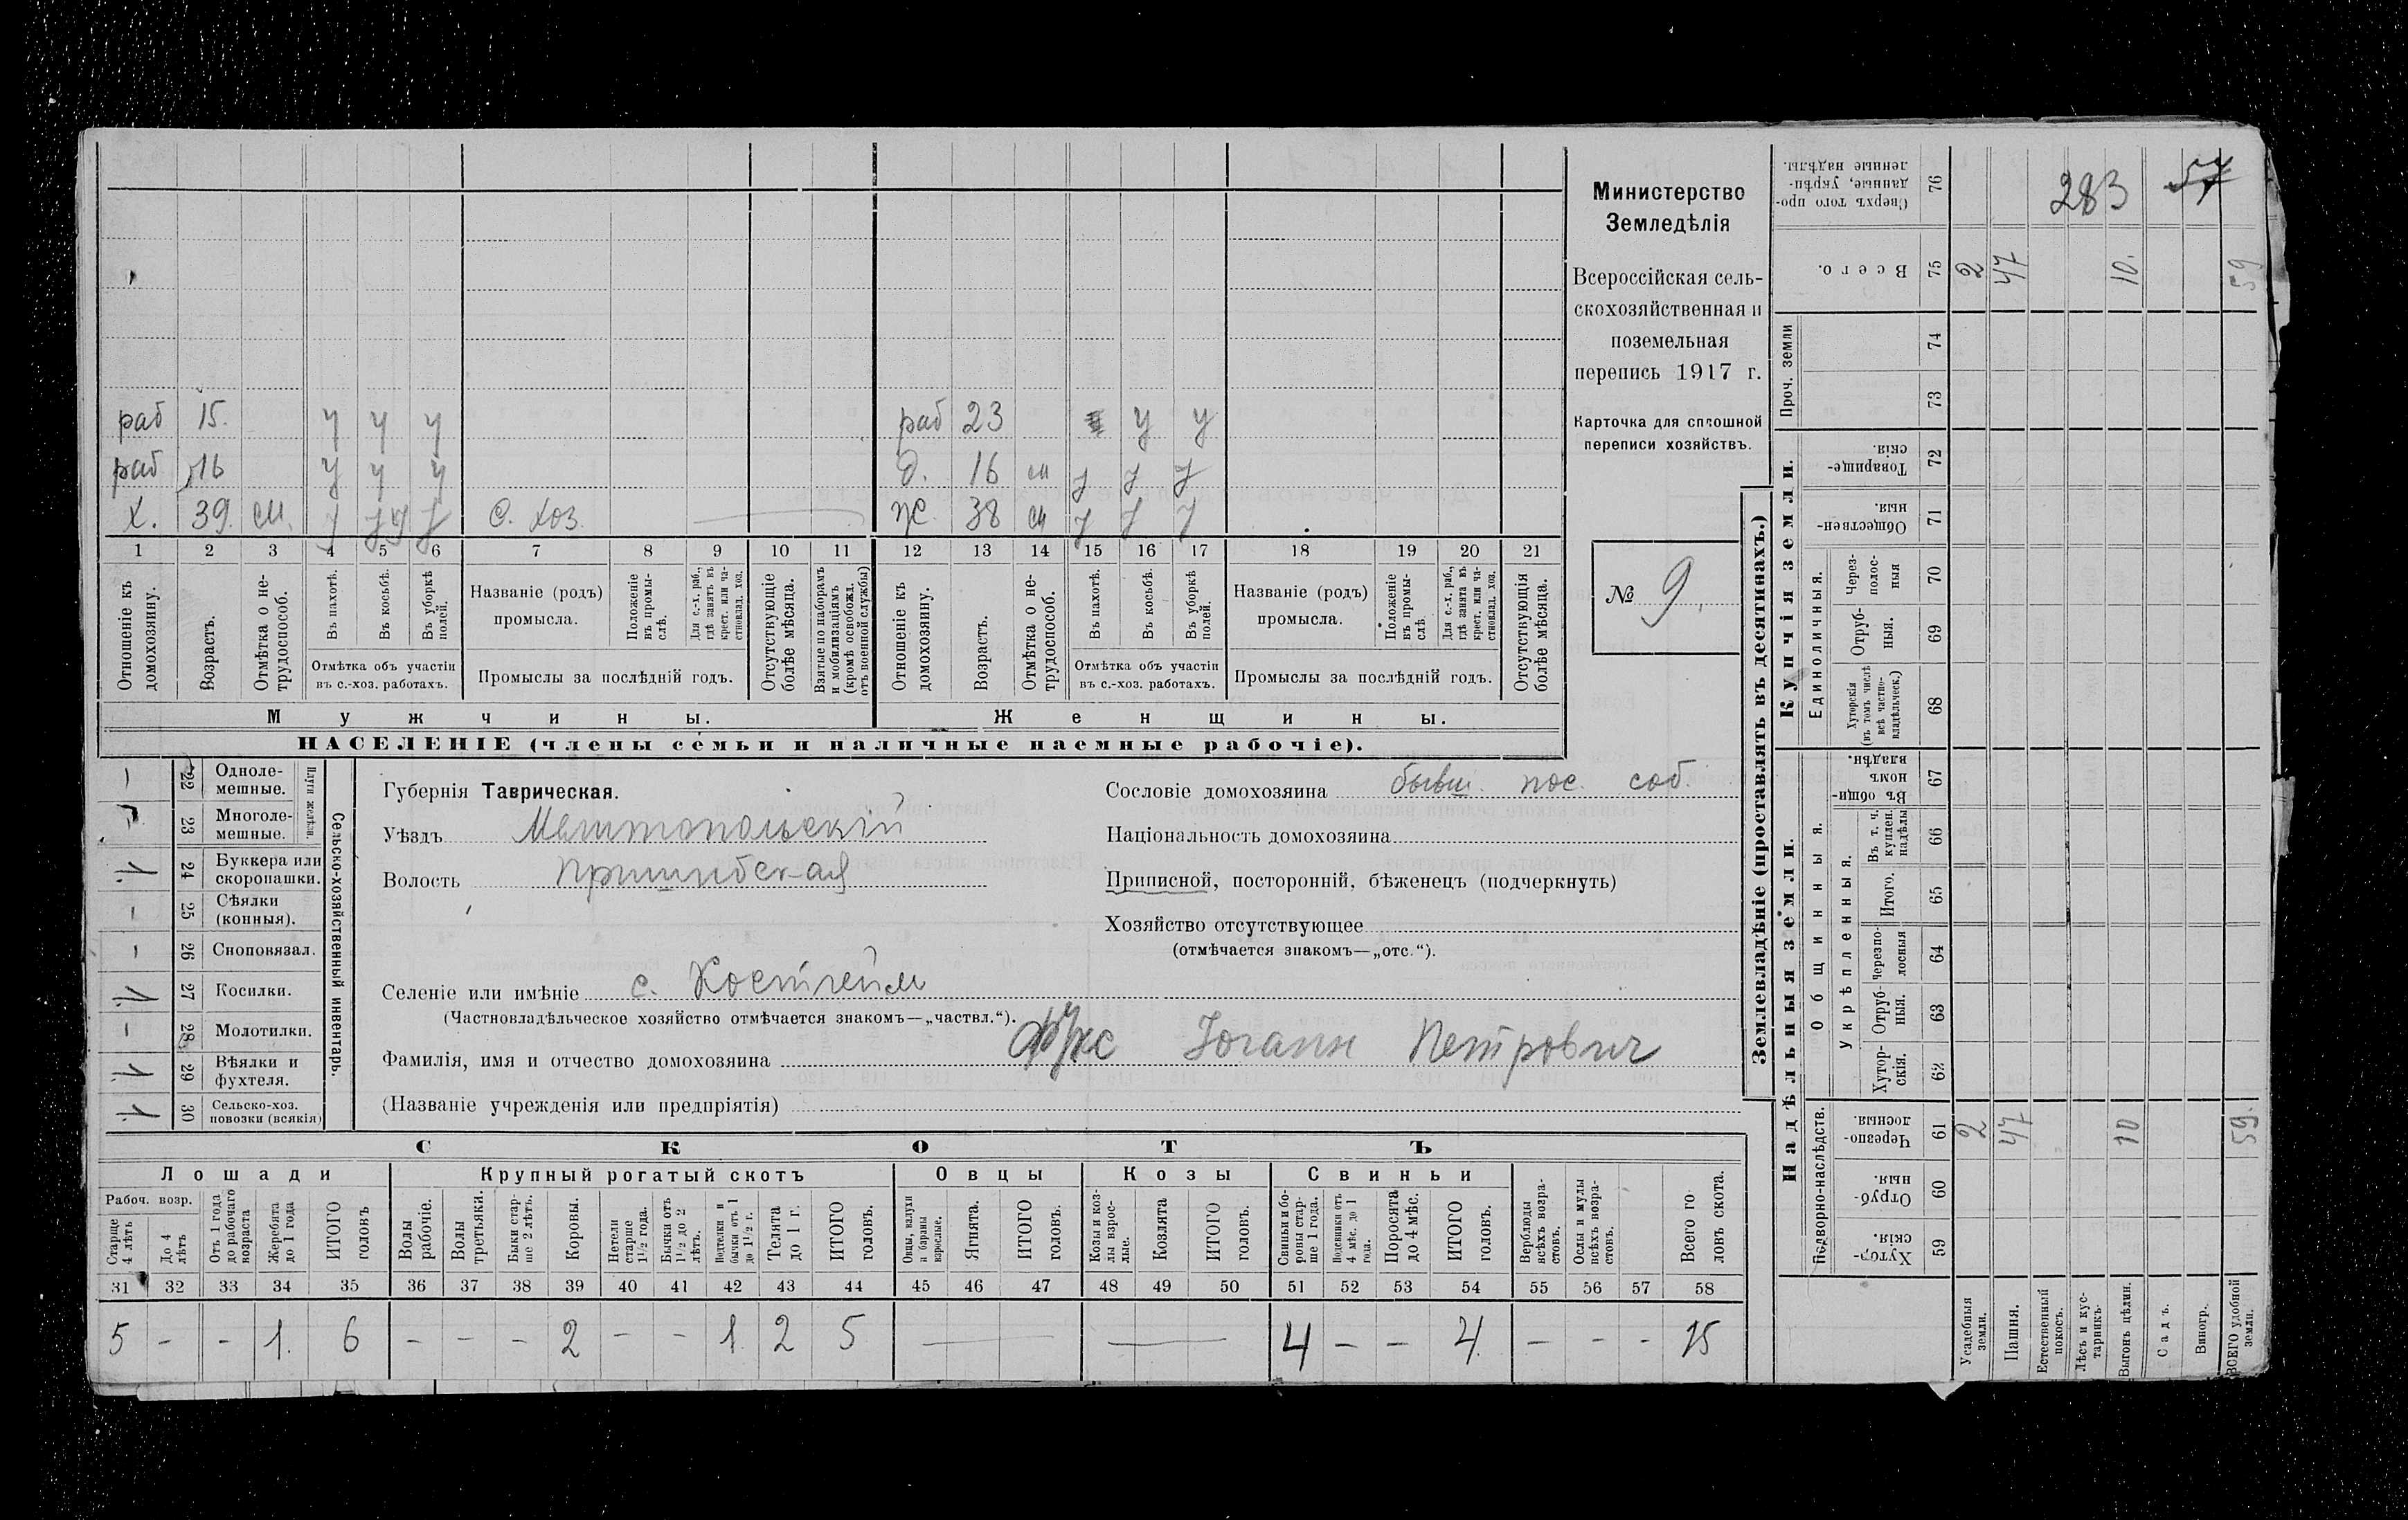 раб 15. у у у раб 23 у у
раб 16 у у у д. 16 см у у у
х. 39. см. у у у у с. хоз. ж. 38 см у у у
1 2 3 4 5 6 7 8 9 10 11 12 13 14 15 16 17 18 19 20 21
Отношеніе къ домохозяину.
Возрастъ.
Отмѣтка о не-трудоспособ.
Въ пахотѣ.
Въ косьбѣ.
Въ уборкѣ полей.
Отмѣтка объ участіи въ с.-хоз. работахъ.
Названіе (родъ) промысла.
Положеніе въ промы-слѣ.
Для с.-х. раб., гдѣ занятъ въ крест. или ча-стновлад. хоз.
Промыслы за послѣдній годъ.
Отсутствующіе болѣе мѣсяца.
Взятые по наборамъ и мобилизаціямъ (кромѣ освобожд. отъ военной службы)
Отношеніе къ домохозяину.
Возрастъ.
Отмѣтка о не-трудоспособ.
Въ пахотѣ.
Въ косьбѣ.
Въ уборкѣ полей.
Отмѣтка объ участіи въ с.-хоз. работахъ.
Названіе (родъ) промысла.
Положеніе въ промы-слѣ.
Для с.-х. раб., гдѣ занята въ крест. или ча-стновлад. хоз.
Промыслы за послѣдній годъ.
Отсутствующія болѣе мѣсяца.
Мужчины. Женщины.
НАСЕЛЕНІЕ (члены семьи и наличные наемные рабочіе).
Министерство
Земледѣлія
Всероссійская сель-
скохозяйственная и
поземельная
перепись 1917 г.
Карточка для сплошной
переписи хозяйствъ.
№ 9.
Сельско-хозяйственный инвентарь.
Плуги желѣзн.
22 Одноле-мешные. —
23 Многоле-мешные.
24 Буккера или скоропашки.
25 Сѣялки (конныя). —
26 Сноповязал. —
27 Косилки.
28 Молотилки. —
29 Вѣялки и фухтеля.
30 Сельско-хоз. повозки (всякія)
Губернія Таврическая.
Уѣздъ Мелитопольскій
Волость Пришибская
Селеніе или имѣніе с. Костгейм
(Частновладѣльческое хозяйство отмѣчается знакомъ—„частвл.“).
Фамилія, имя и отчество домохозяина Фукс Іоганн Петрович
(Названіе учрежденія или предпріятія)
Сословіе домохозяина бывш. пос. соб.
Національность домохозяина
Приписной, посторонній, бѣженецъ (подчеркнуть)
Хозяйство отсутствующее
(отмѣчается знакомъ—„отс.“).
СКОТЪ
Лошади Крупный рогатый скотъ Овцы Козы Свиньи
Рабоч. возр.
Старше 4 лѣтъ
До 4 лѣтъ
Отъ 1 года до рабочаго возраста
Жеребята до 1 года
ИТОГО головъ
Волы рабочіе.
Волы третьяки.
Быки стар-ше 2 лѣтъ.
Коровы.
Нетели старше 1½ года.
Бычки отъ 1½ до 2 лѣтъ.
Подтелки и бычки отъ 1 до 1½ г.
Телята до 1 г.
ИТОГО головъ.
Овцы, валухи и бараны взрослые.
Ягнята.
ИТОГО головъ.
Козы и коз-лы взрос-лые.
Козлята
ИТОГО головъ.
Свиньи и бо-ровы стар-ше 1 года.
Подсвинки отъ 4 мѣс. до 1 года.
Поросята до 4 мѣс.
ИТОГО головъ.
Верблюды всѣхъ возра-стовъ.
Ослы и мулы всѣхъ возра-стовъ.
Всего го-ловъ скота.
31 32 33 34 35 36 37 38 39 40 41 42 43 44 45 46 47 48 49 50 51 52 53 54 55 56 57 58
5 - - 1. 6 - - - 2 - - 1. 2 5 — — 4 - - 4. - - - 15
Землевладѣніе (проставлять въ десятинахъ.)
Надѣльныя земли. Купчія земли.
Подворно-наслѣдств.
Общинныя.
Укрѣпленныя.
Единоличныя.
Проч. земли
Сверхъ того про-данные, укрѣп-ленные надѣлы. 76 283 57
Всего. 75 2 47 10. 59
74
73
Товарище-скія 72
Обществен-ныя. 71
Через-полос-ныя 70
Отруб-ныя. 69
Хуторскія (въ томъ числѣ всѣ частно-владѣльческ.) 68
Въ общин-номъ владѣн. 67
Въ т. ч. куплен. надѣлы 66
Итого. 65
Черезпо-лосныя 64
Отруб-ныя. 63
Хутор-скія. 62
Черезпо-лосныя. 61 2 47 10 59.
Отруб-ныя. 60
Хутор-скія. 59
Усадебныя земли.
Пашня.
Естественный покосъ.
Лѣсъ и кус-тарникъ.
Выгонъ цѣлин.
Садъ.
Виногр.
ВСЕГО удобной земли.